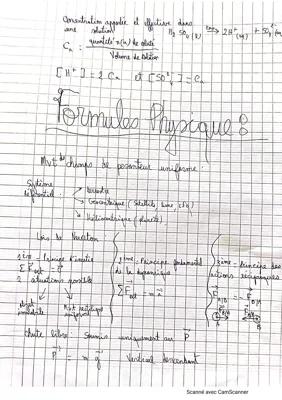 Concentration apportée et effective dans
une solution
H₂SO₄ (l) → 2H⁺ (aq) + SO₄²⁻ (aq)
Cₐ = quantité n(n) de soluté
Volume de solution
[H⁺] = 2Cₐ et [SO₄²⁻] = Cₐ
Formules Physique :
Mvt de champs de pesanteur uniforme :
Système
référentiel :
Terrestre
Géocentrique (Satellite, Lune,
Héliocentrique (planète)
Lois de Newton
1ère - Principe d'inertie
ΣFext = 0
2 situations possible
objet
immobile
Mvt rectiligne
uniforme
2ème - Principe fondamental
de la dynamique
3ème - Principe des
actions réciproques
Chute libre : Soumis uniquement au P
P = m g Vertical descendant
Scanné avec CamScanner